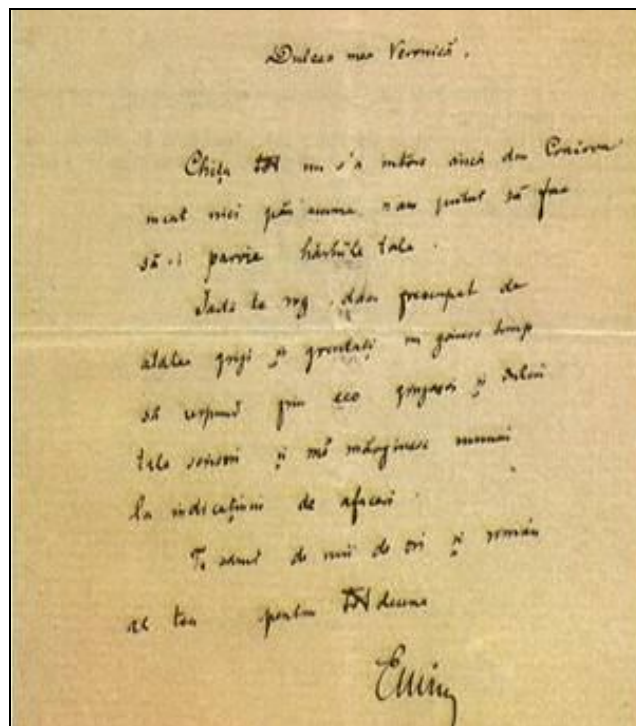 Dulcea mea Veronică,
Chițu nu s'a întors încă din Craiova
încât nici pân'acuma n'am putut să fac
să-i parvie hârtiile tale.
Iartă te rog, dacă preocupat de
atâtea griji și greutăți
să respund prin eco și dulcei
tale scrisori și mă mărginesc numai
la indicațiuni de afaceri.
Te sărut de mii de ori și român
al tău pentru
Emin